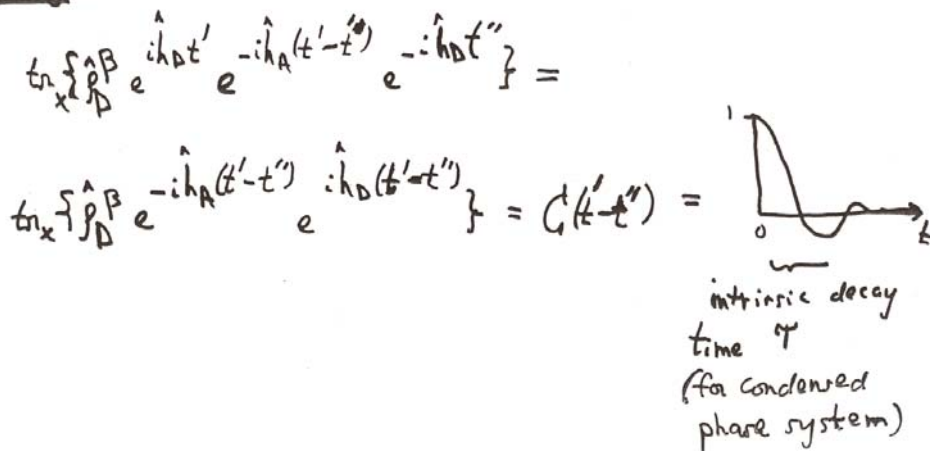 tr_x{ρ̂_D^β e^{iĥ_D t'} e^{-iĥ_A(t'-t'')} e^{-iĥ_D t''}} =
tr_x{ρ̂_D^β e^{-iĥ_A(t'-t'')} e^{iĥ_D(t'-t'')}} = C(t'-t'') =
1
0
t
intrinsic decay
time τ
(for condensed
phase system)